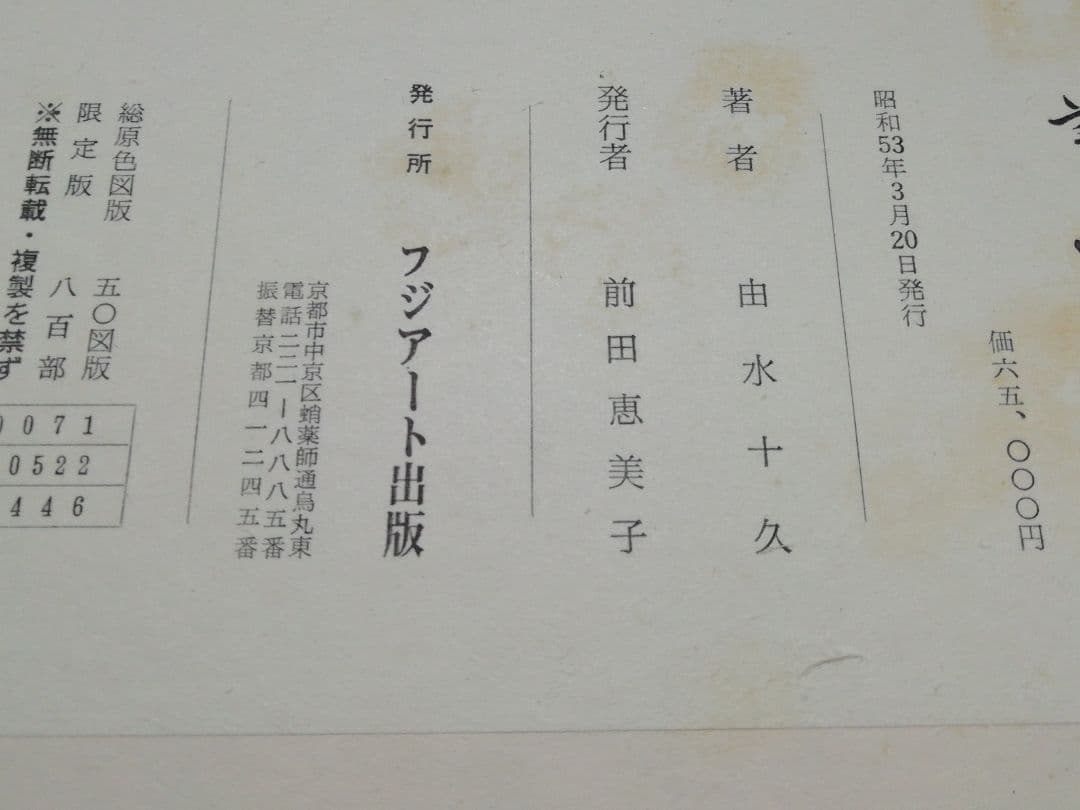 価六五、〇〇〇円
昭和53年3月20日発行
著者 由水十久
発行者 前田恵美子
発行所 フジアート出版
京都市中京区蛸薬師通烏丸東
電話二二一ー八八八五番
振替京都四一二四五番
総原色図版 五〇図版
限定版 八百部
※無断転載・複製を禁ず
0071
0522
446